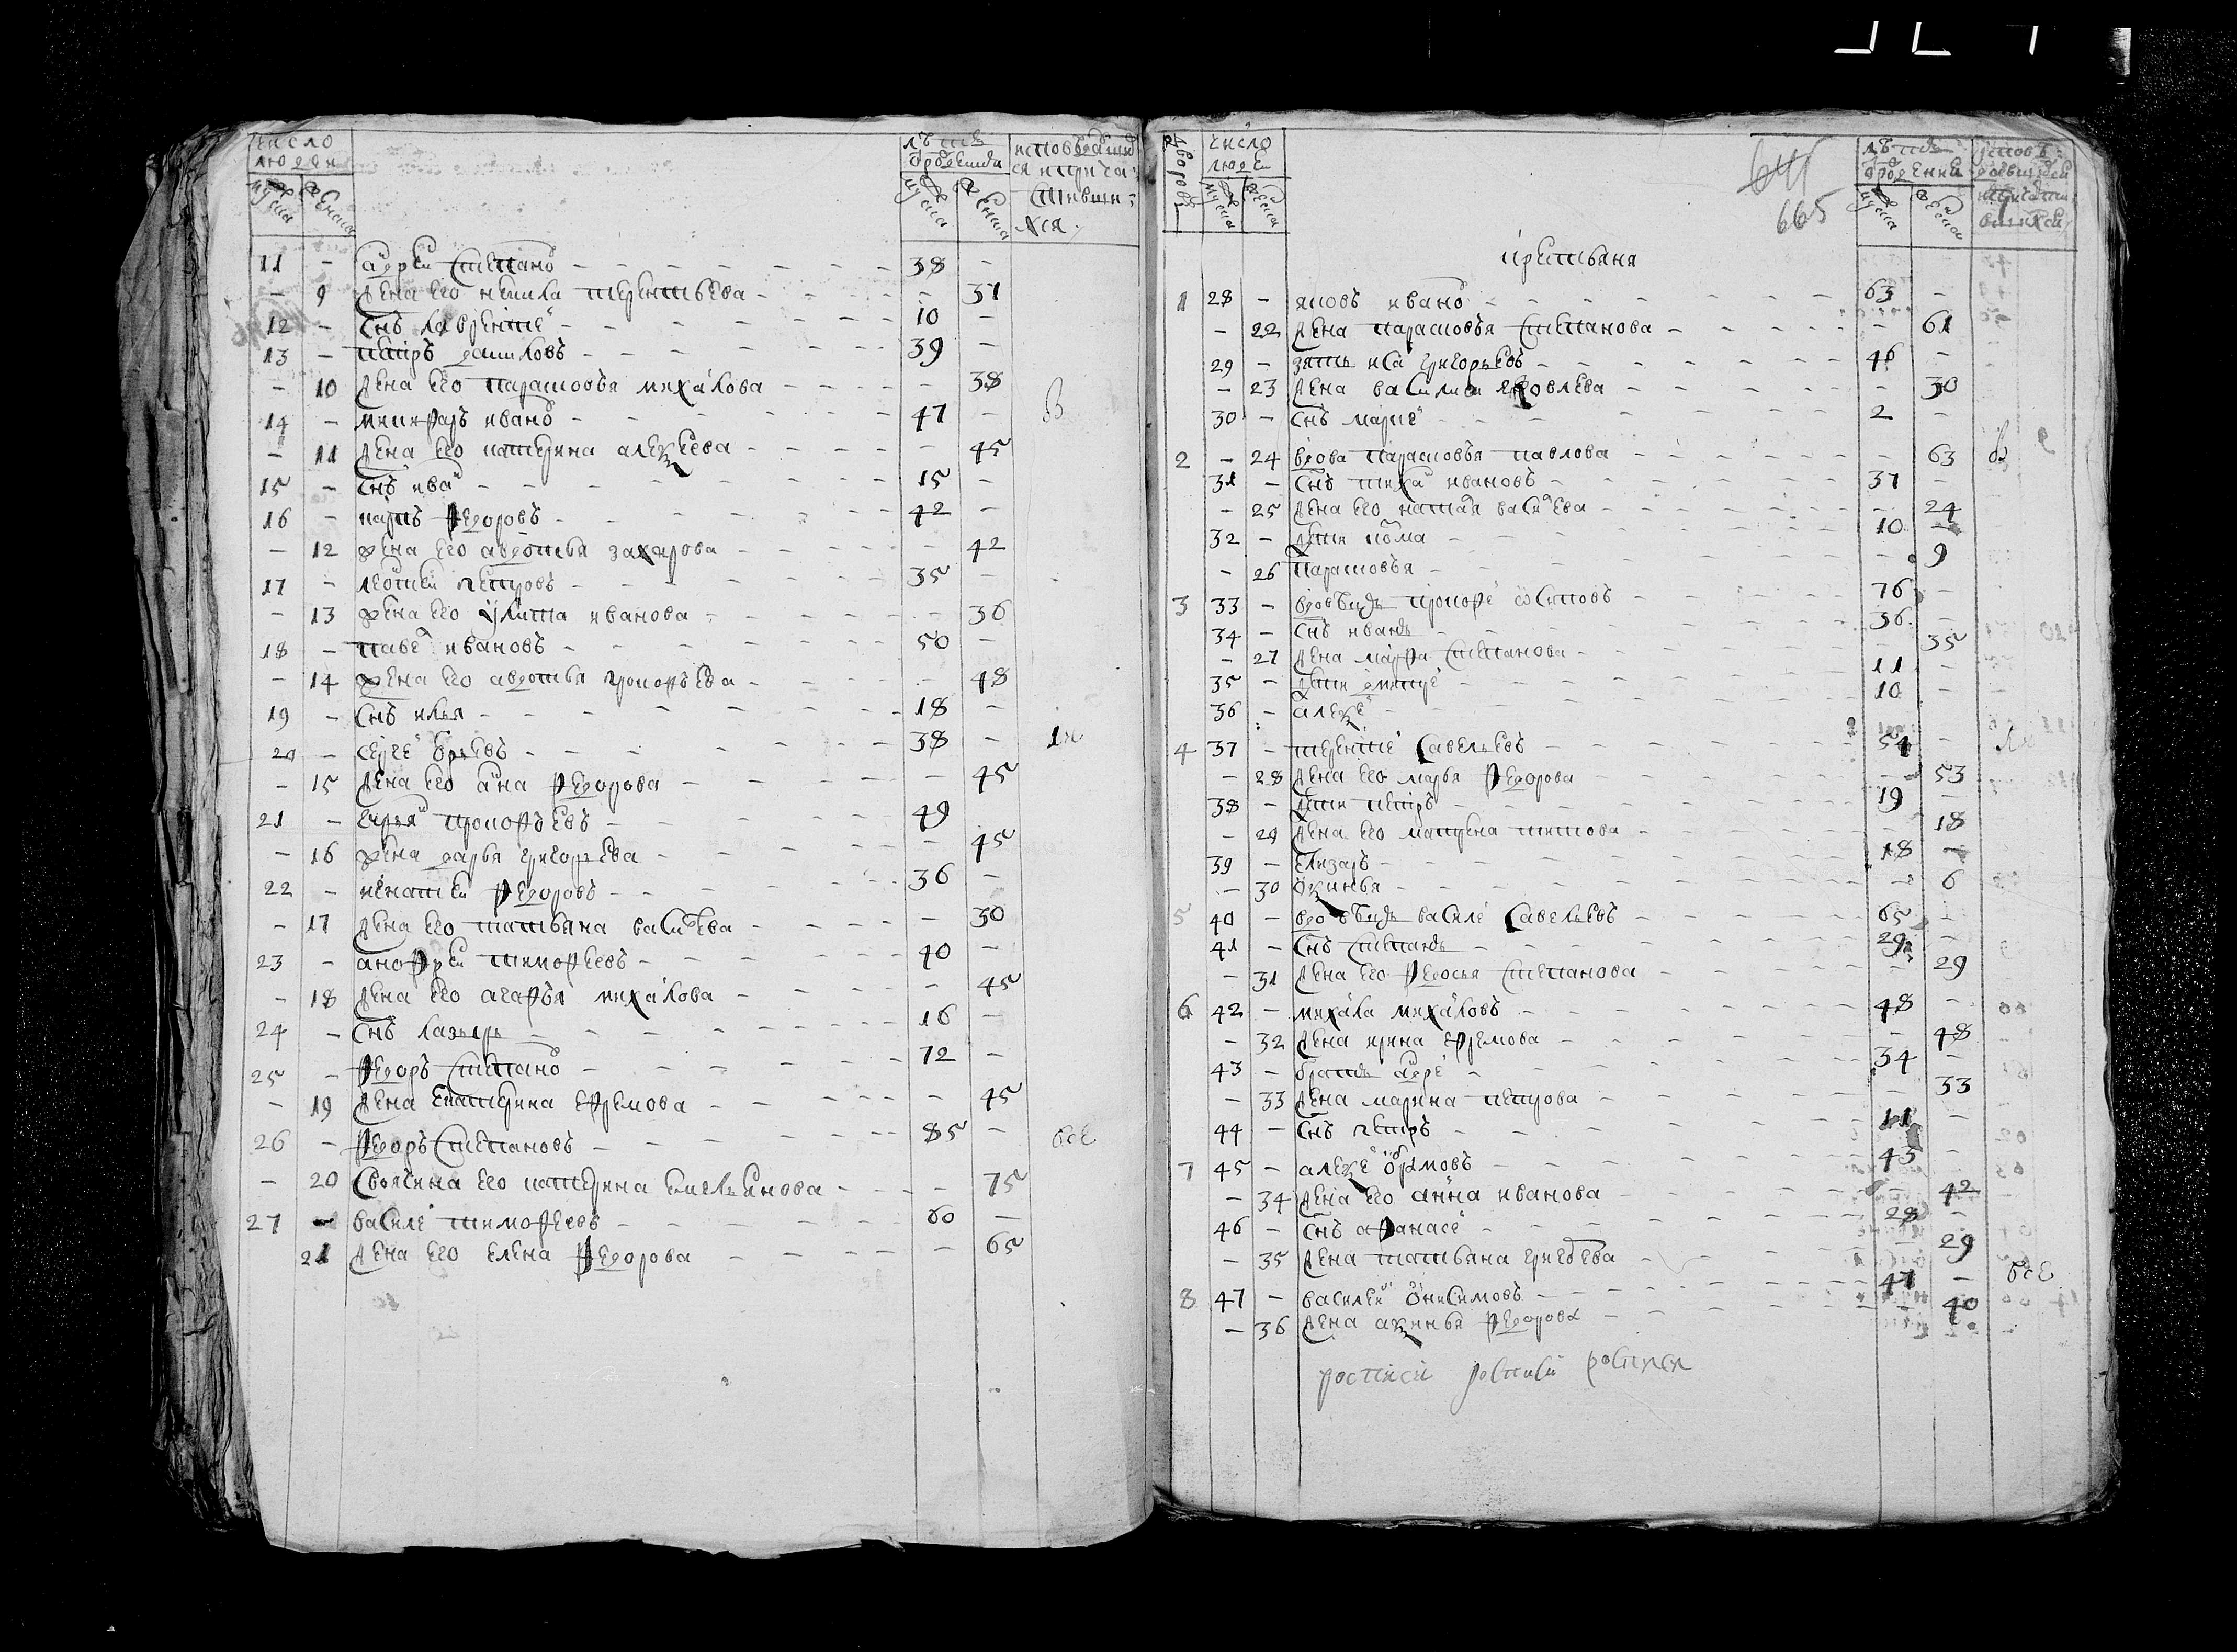 число людеи
мужеска
женска
лѣтъ ѿ рождения
мужеска
женска
исповѣдавшихся и причастившихся
11 - адреи степано 38 -
- 9 жена его ненила терентьева - 37
12 - снъ лаврентеи 10 -
13 - петръ даниловъ 39 -
- 10 жена его парасковья михаилова - 38
14 - никифаръ ивано 47 -
- 11 жена его катерина алеѯеева - 45
15 - снъ ива 15 -
16 - карпъ федоровъ 42 -
- 12 жена его авдотья захарова - 42
17 - леонтеи петровъ 35 -
- 13 жена его улита иванова - 36
18 - паве ивановъ 50 -
- 14 жена его авдотья прокофьева - 48
19 - снъ илья 18 -
20 - сергеи 38 -
- 15 жена его анна федорова - 45
21 - прокофьевъ 49
- 16 жена дарья григорьева - 45
22 - игнатеи федоровъ 36 -
- 17 жена его татьяна василева - 30
23 - анофреи тимофеевъ 40 -
- 18 жена его агафья михаилова - 45
24 - снъ лазырь 16 -
25 - федоръ степано 72 -
- 19 жена екатерина ефремова - 45
26 - федоръ степановъ 85 - все
- 20 своячина его катерина емельянова - 75
27 - василеи тимофеевъ 60 -
21 жена его елена федорова - 65
дворовъ
число люде
мужеска
женска
641
665
лѣтъ ѿ рождения
мужеска
женска
крестьяня
1 28 - яковъ ивано 63 -
- 22 жена парасковья степанова - 61
29 - зять исаи григорьевъ 46 -
- 23 жена василиса яковлева - 30
30 - снъ маркеи 2 -
2 - 24 вдова парасковья павлова - 63
31 - снъ тихан ивановъ 37 -
- 25 жена его наталя василева - 24
32 - дети кома 10 -
- 26 парасковья - 9
3 33 - вдовецъ прокофеи осиповъ 76 -
34 - снъ иванъ 36 -
- 27 жена марфа степанова - 35
35 - дети дмитреи 11 -
36 - алеѯеи 10 -
4 37 - терентеи савельевъ 54 -
- 28 жена его марья федорова - 53
38 - дети петръ 19 -
- 29 жена его матрена титова - 18
39 - елизаръ 18 -
- 30 оѯинья - 6
5 40 - вдовецъ василеи савельевъ 65 -
41 - снъ степанъ 29 -
- 31 жена его федосья степанова - 29
6 42 - михаила михаиловъ 48 -
- 32 жена ирина ефремова - 48
43 - братъ адреи 34 -
- 33 жена марина петрова - 33
44 - снъ петръ 11 -
7 45 - алеѯеи 45 -
- 34 жена его анна иванова - 42
46 - снъ афанасеи 28 -
- 35 жена татьяна григорева - 29
8 47 - василеи онисимовъ 47 - все
- 36 жена аѯинья федорова - 40
росписи росписи росписи